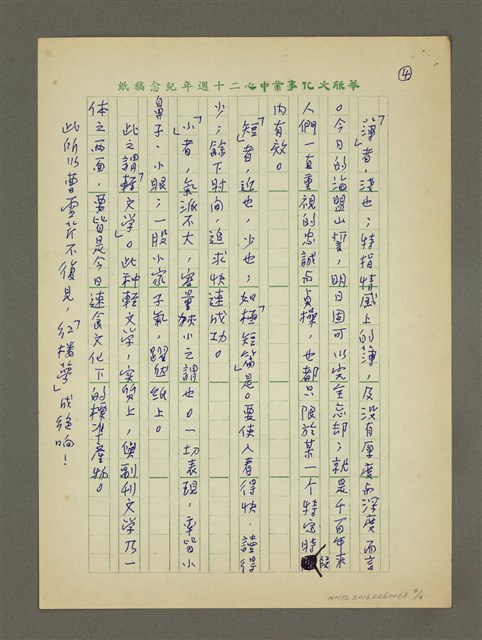 ④
華欣文化事業中心二十週年紀念稿紙
「薄」者，淺也；特指情感上的薄，及沒有厚度与深度而言
。今日的海盟山誓，明日固可以完全忘却；就是千百年來
人們一直重視的忠誠与貞操，也都只限於某一个特定時段
內有效。
「短」者，近也，少也；如「極短篇」是。要使人看得快，讀得
少；餘下时间，追求快速成功。
「小」者，氣派不大，容量狹小之謂也。一切表現，率皆小
鼻子、小眼；一股小家子氣，躍然紙上。
此之謂「輕文学」。此种輕文学，实质上，與副刊文学乃一
体之两面，要皆是今日速食文化下的標準產物。
此所以曹雪芹不復見，「紅楼夢」成絕响！
NMTL20160260063 4/4